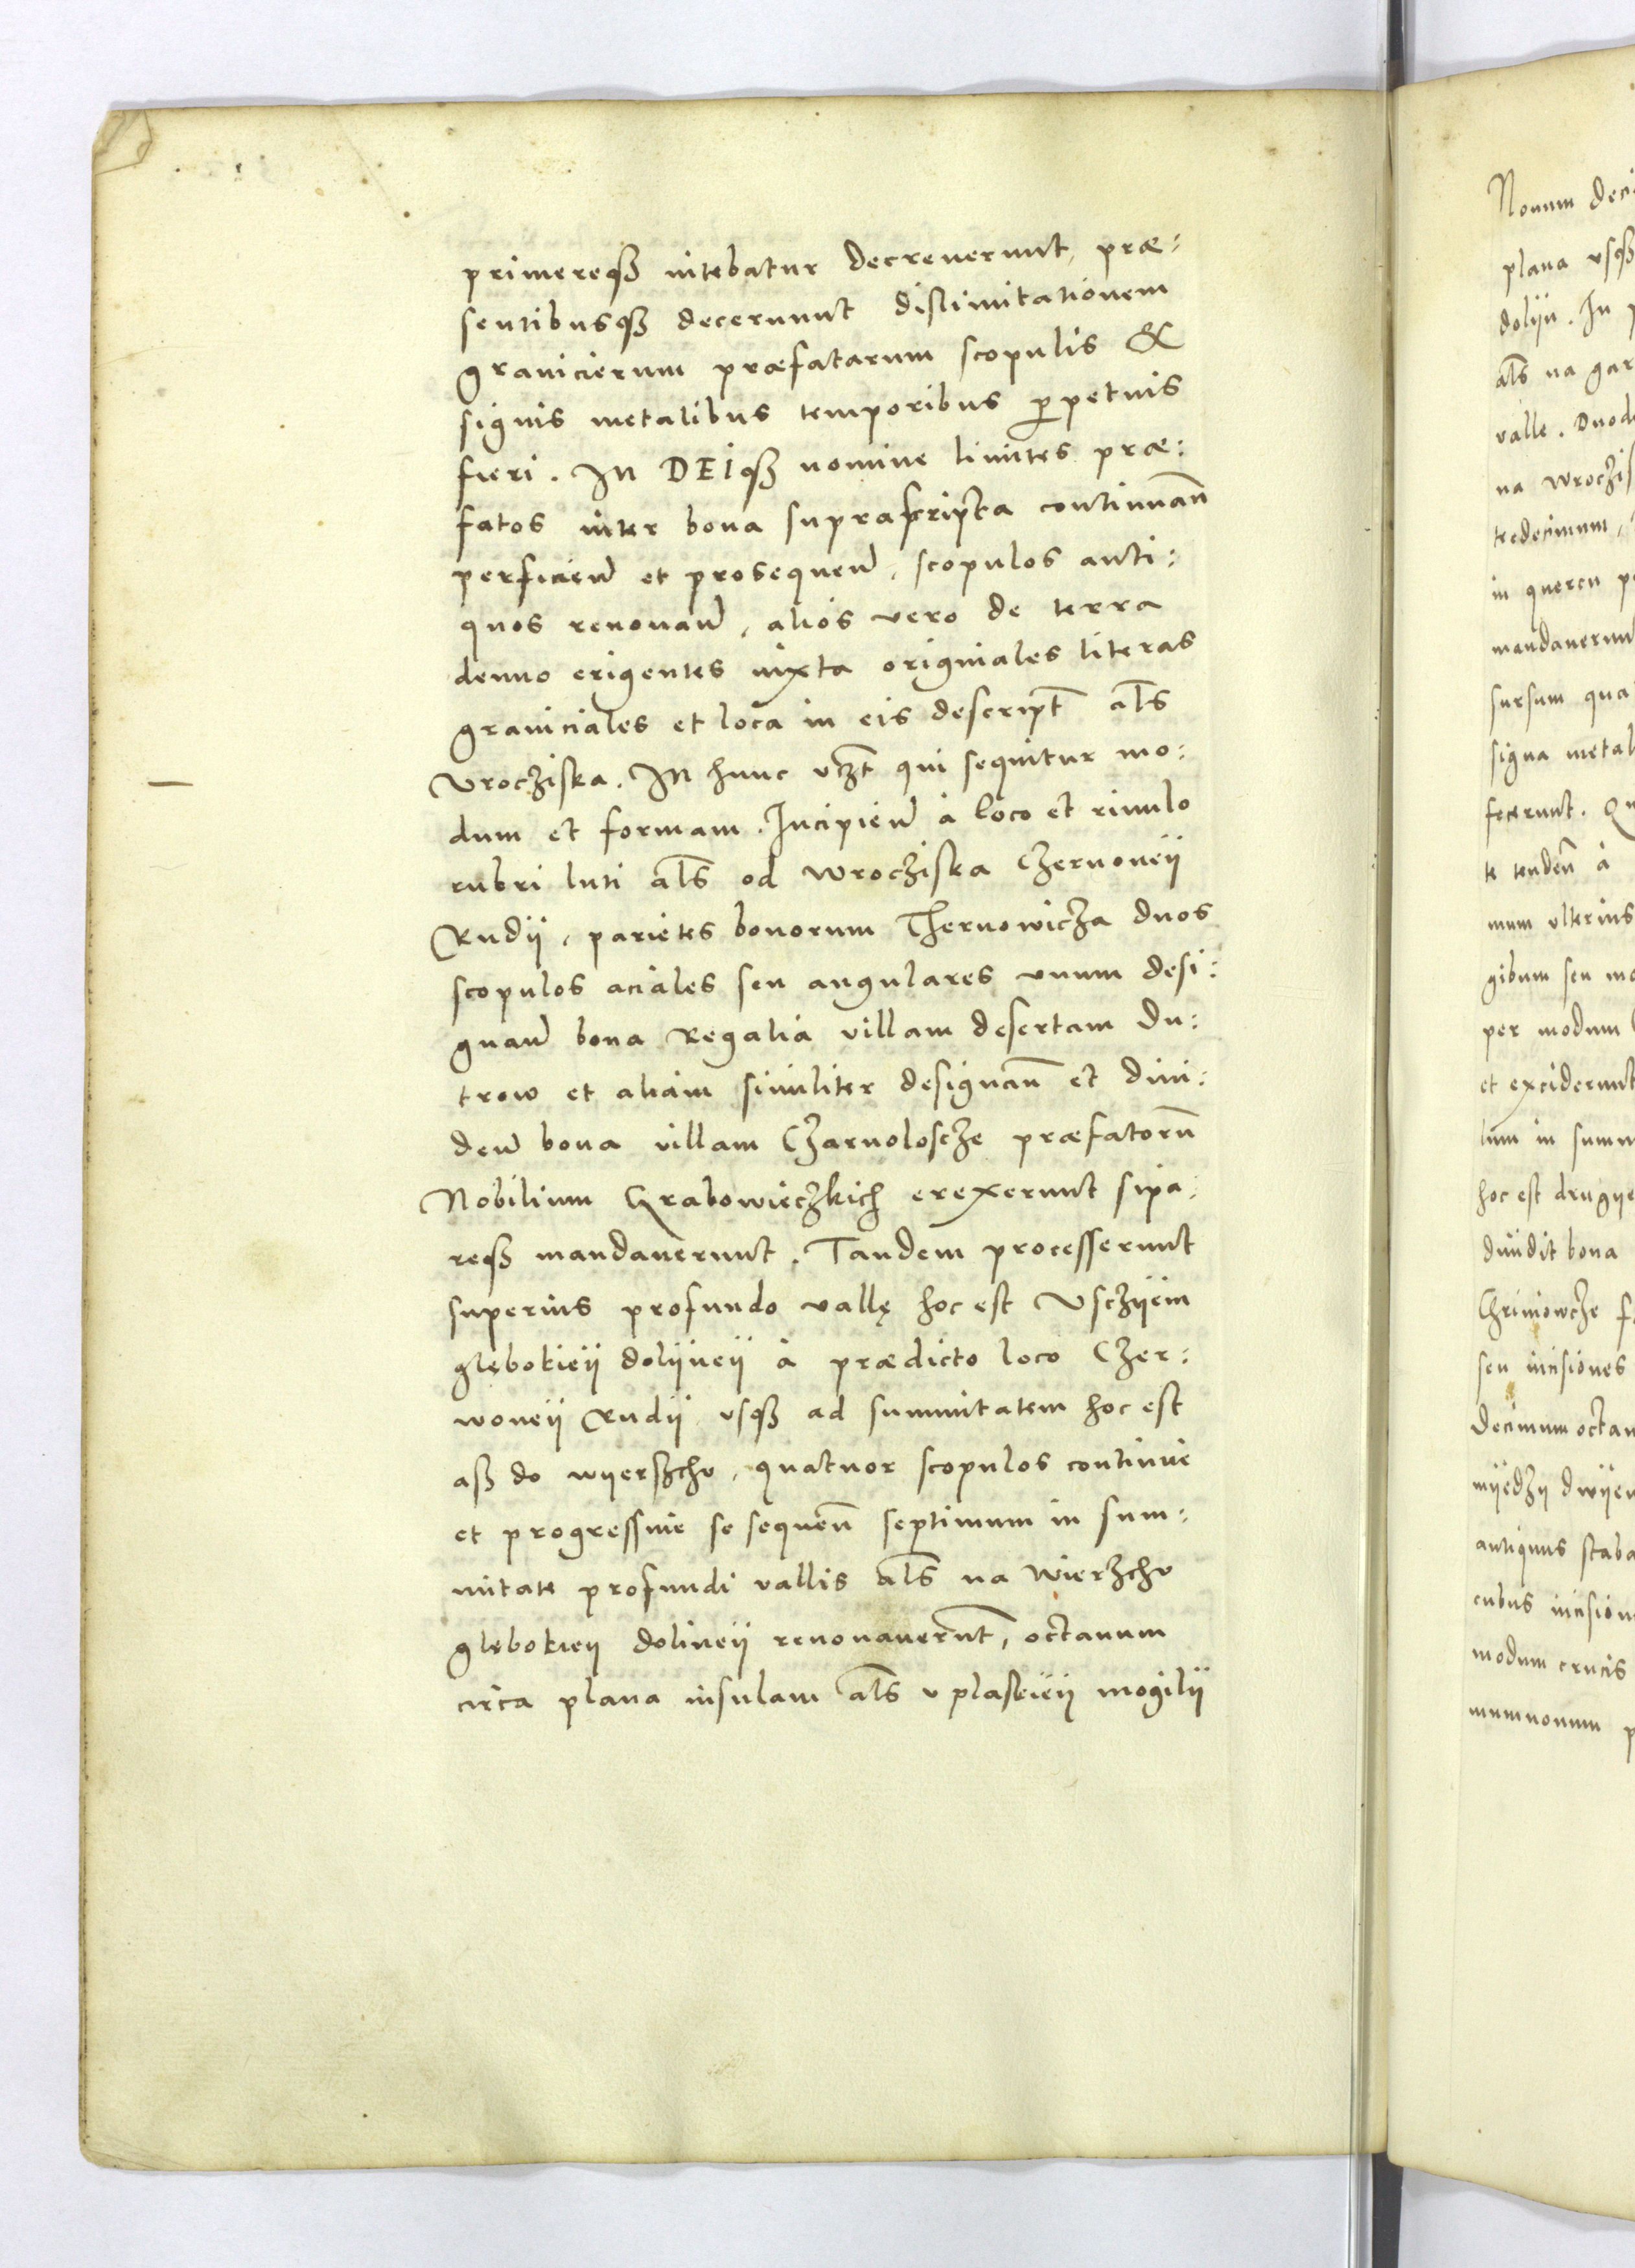 primereqꝫ nitebatur decreuerunt, præ:
sentibusqꝫ decernunt dislimitationem
granicierum præfatarum scopulis &
signis metalibus temporibus ꝑpetuis
fieri. In DEIqꝫ nomine limites præ:
fatos inter bona suprascripta continuañ
perficieñ et prosequeñ, scopulos anti:
quos renouañ, alios vero de terra
denuo erigentes iuxta originales literas
graniciales et loca in eis descript̃ al̃s
Vrocziska. In hunc vꝫt qui sequitur mo:
dum et formam. Incipieñ à loco et riuulo
rubri luti al̃s od wrocziska Czernoneÿ
Rudÿ, parietes bonorum Thernowicza duos
scopulos aciales seu angulares vnum desi:
gnañ bona Regalia villam desertam Du:
trow et aliam similiter designañ et diui:
deñ bona villam Czarnoloscze præfatorũ
Nobilium Grabowieczkich erexerunt sipa:
reqꝫ mandauerunt. Tandem processerunt
superius profundo vallę hoc est Vsczÿem
glębokieÿ dolÿneÿ à prædicto loco Czer:
woneÿ Rudÿ vsqꝫ ad summitatem hoc est
aß do wÿerszchv, quatuor scopulos continue
et progressiue se sequeñ septimum in sum:
mitate profundi vallis al̃s na wierzchv
glębokieÿ dolineÿ renouauerũt, octauum
circa plana insulam al̃s v plaskieÿ mogilÿ
Nonum deci
plana vsqꝫ
dolÿn. In
al̃s na gar
valle. Duod
na wroczis
tredecimum,
in quercu
mandauerunt
sursum qua
signa metal
fecerunt. Qu
te tendeñ à
mum vlterius
gibum seu mo
per modum
et exciderunt
lum in summ
hoc est drugÿe
diuidit bona
Chriniowcze
seu incisiones
decimum octau
mÿedzÿ dwÿem
antiquus staba
cubus incision
modum crucis
mumnonum